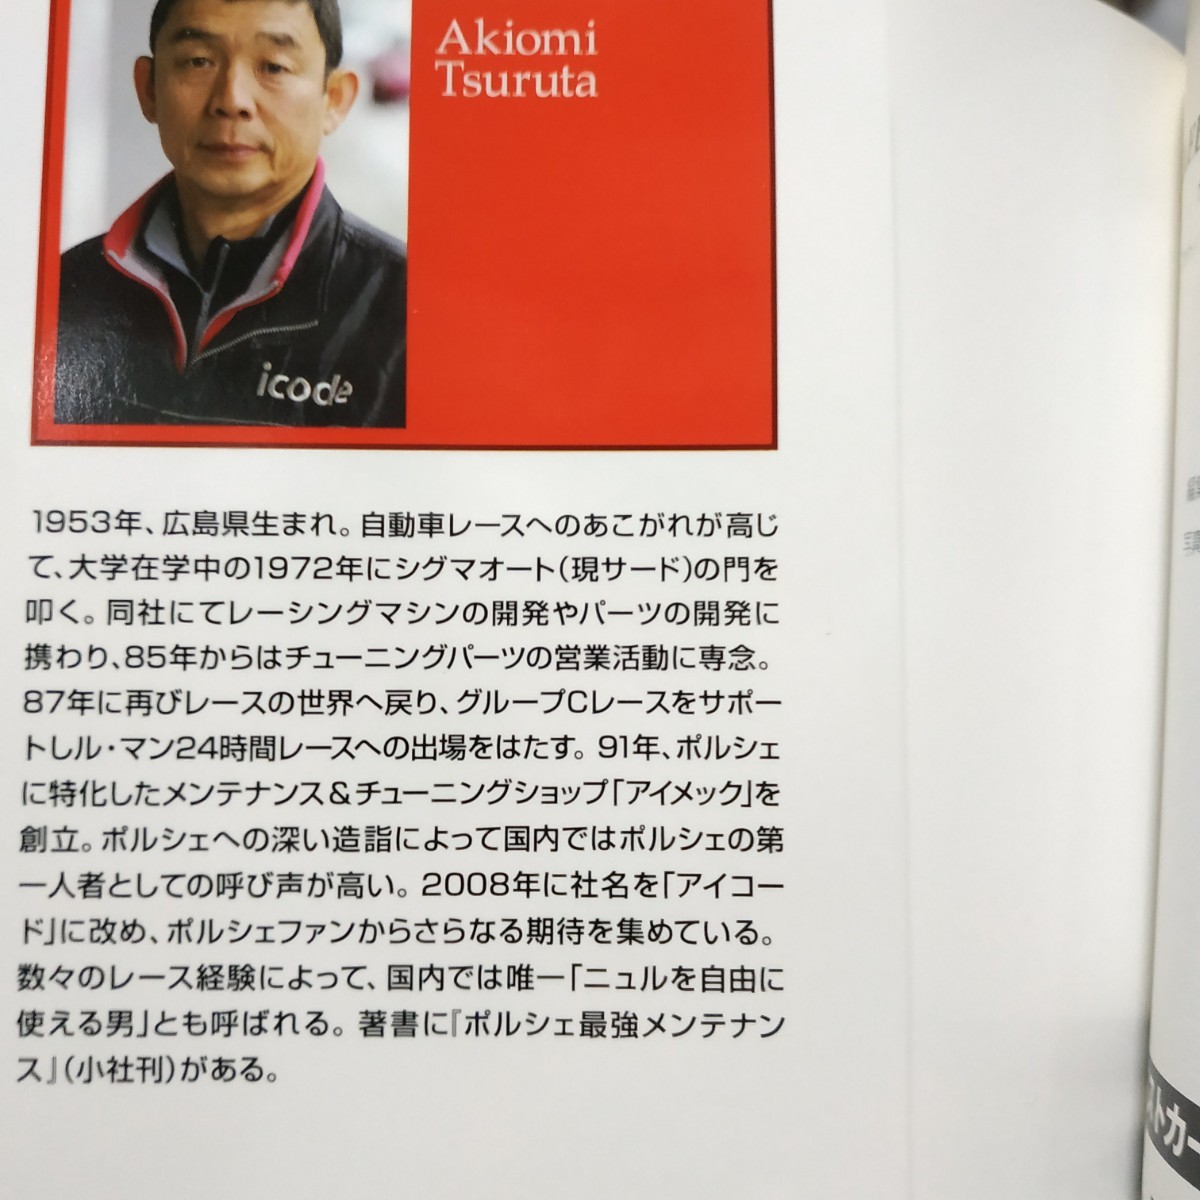 Akiomi
Tsuruta
icode
1953年、広島県生まれ。自動車レースへのあこがれが高じ
て、大学在学中の1972年にシグマオート(現サード)の門を
叩く。同社にてレーシングマシンの開発やパーツの開発に
携わり、85年からはチューニングパーツの営業活動に専念。
87年に再びレースの世界へ戻り、グループCレースをサポー
トしル・マン24時間レースへの出場をはたす。91年、ポルシェ
に特化したメンテナンス&チューニングショップ「アイメック」を
創立。ポルシェへの深い造詣によって国内ではポルシェの第
一人者としての呼び声が高い。2008年に社名を「アイコー
ド」に改め、ポルシェファンからさらなる期待を集めている。
数々のレース経験によって、国内では唯一「ニュルを自由に
使える男」とも呼ばれる。著書に『ポルシェ最強メンテナン
ス』(小社刊)がある。
ストカー